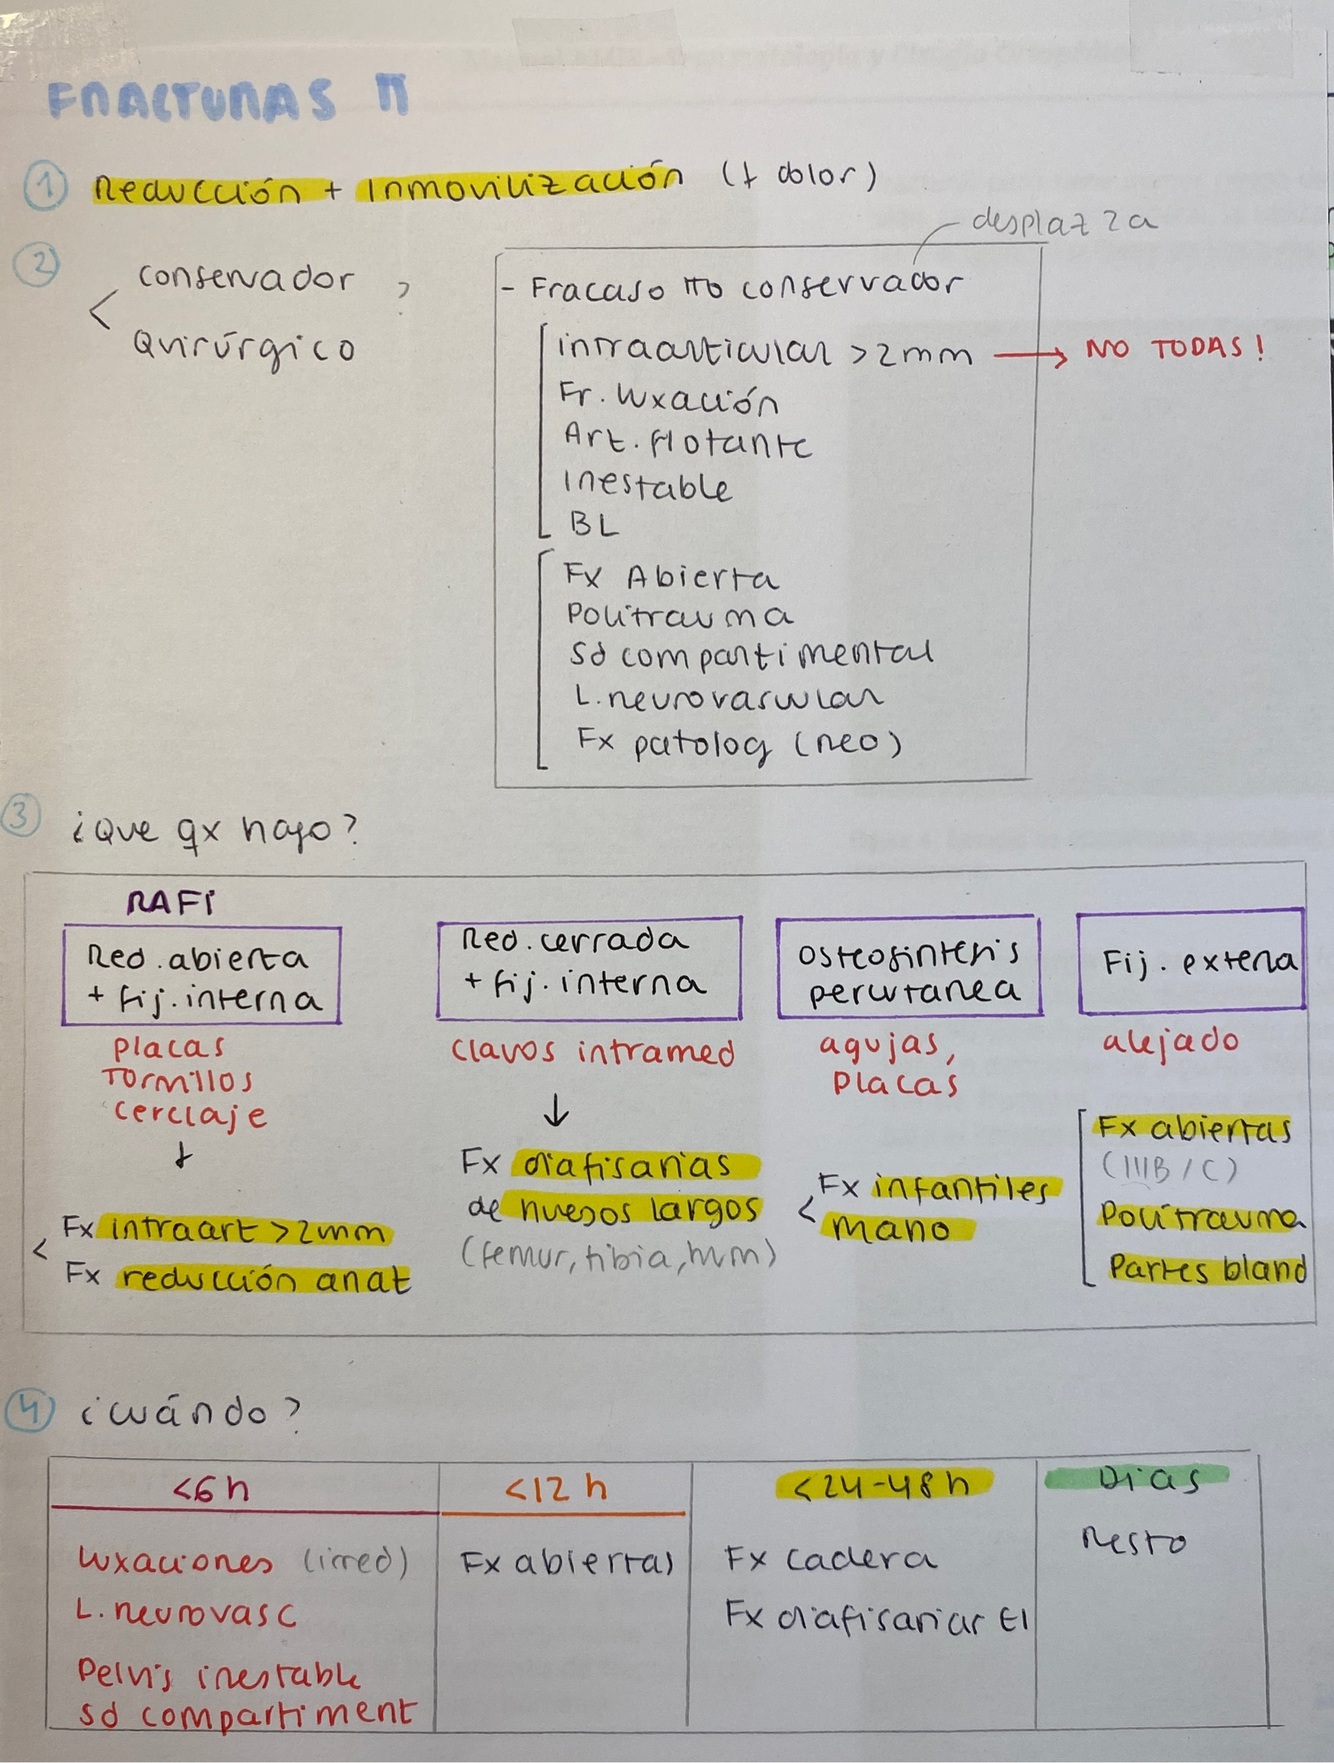 FRACTURAS π
① Reducción + Inmovilización (↓ dolor)
desplaz 2a
②
conservador
< ?
Quirúrgico
- Fracaso tto conservador
intraarticular >2mm → NO TODAS!
Fr. luxación
Art. flotante
Inestable
BL
Fx Abierta
Politrauma
Sd compartimental
L. neurovascular
Fx patolog (neo)
③ ¿Que qx hago?
RAFI
Red. abierta
+ fij. interna
placas
Tornillos
cerclaje
↓
< Fx intraart >2mm
Fx reducción anat
Red. cerrada
+ fij. interna
clavos intramed
↓
Fx diafisarias
de huesos largos
(femur, tibia, hum)
Osteosintesis
percutanea
agujas,
placas
< Fx infantiles
mano
Fij. externa
alejado
Fx abiertas
(IIIB/C)
Politrauma
Partes bland
④ ¿cuándo?
<6h
luxaciones (irred)
L. neurovasc
Pelvis inestable
Sd compartiment
<12 h
Fx abiertas
<24-48h
Fx cadera
Fx diafisarias EI
Dias
Resto